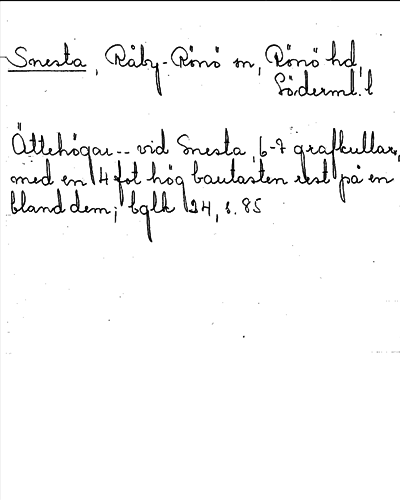 Snesta, Råby-Rönö sn, Rönö hd,
Söderml. l
Ättehögar -- vid Snesta, 6-7 grafkullar,
med en 4 fot hög bautasten rest på en
bland dem; bglk 24, s. 85